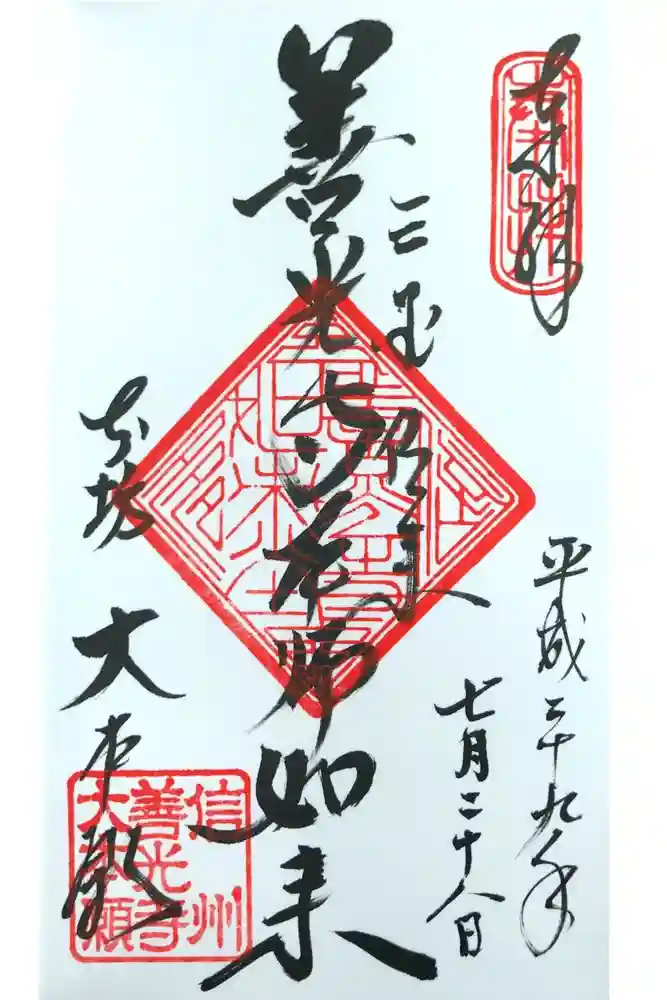 奉拝
平成二十九年
七月二十八日
三国伝来
善光寺本師如来
本坊
大本願
信州
善光寺
大本願